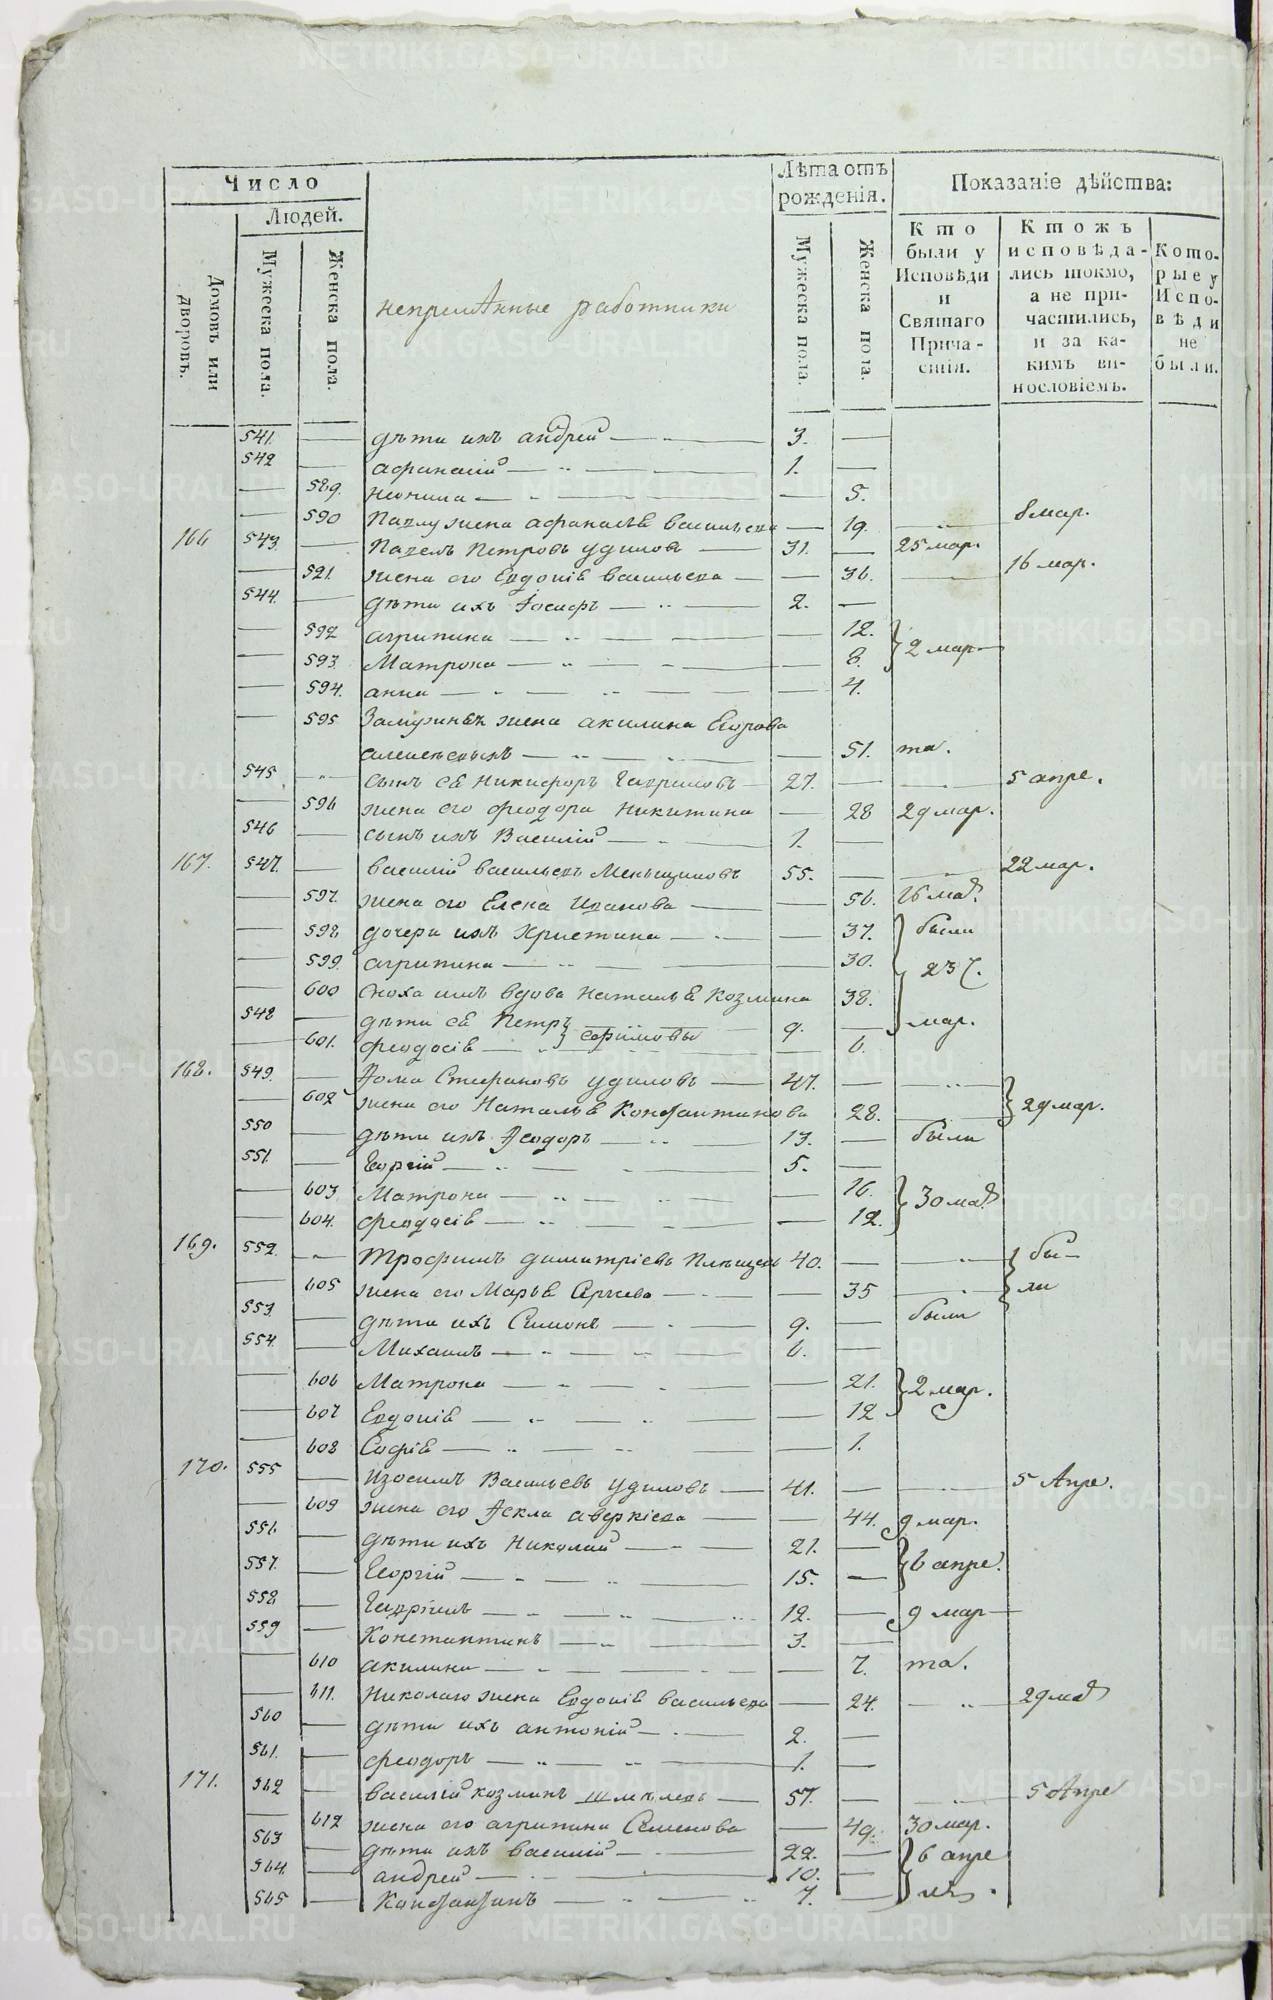 Число
Людей.
Домовъ или дворовъ.
Мужеска пола.
Женска пола.
непремѣнные работники
Лѣта отъ рожденія.
Мужеска пола.
Женска пола.
Показаніе дѣйства:
Кто были у Исповѣди и Святаго Причастія.
Ктожъ исповѣдались токмо, а не причастились, и за какимъ винословіемъ.
Которые у Исповѣди не были.
541. — дѣти ихъ андрей — 3. —
542 — афанасій — 1. —
— 589. неонила — — 5.
— 590 Павлу жена афанасіѣ васильева — 19. — 8 мар.
166 543. — Павелъ Петровъ удиловъ — 31. — 25 мар.
— 591. жена его Евдокіѣ васильева — — 36. — 16 мар.
544. — дѣти ихъ Іосифъ — 2. —
— 592 агрипина — — 12.
— 593. Матрона — — 8. 2 мар
— 594. анна — — 4.
— 595 жена акилина Егорова
— — 51. та.
545 — сынъ еѣ Никифоръ Гавриловъ — 27. — — 5 апре.
596 жена его феодора никитина — 28 29 мар.
546 — сынъ ихъ Василій — 1. —
167. 547. — василій васильевъ Меньщиковъ 55. — — 22 мар.
597. жена его Елена Иванова — — 56. 26 мар.
— 598. дочери ихъ христина — — 37. были
— 599. агрипина — — 30. 23
— 600 сноха ихъ вдова Наталіѣ козмина 38.
548 — дѣти еѣ Петръ 9. — мар.
— 601. феодосіѣ — — 6.
168. 549. — Фома Стефановъ удиловъ — 47. — —
602 жена его Наталіѣ Константинова 28. — 29 мар.
550 — дѣти ихъ Феодоръ — 13. — были
551. — Георгій — 5. —
— 603 Матрона — — 16. 30 мар
— 604. феодосіѣ — — 12.
169. 552. — Трофимъ димитріевъ 40. — — бы-
— 605 жена его Маріѣ — — 35 — ли
553. — дѣти ихъ Симонъ — 9. — были
554. — Михаилъ — 6. —
606 Матрона — — 21. 2 мар.
— 607 Евдокіѣ — — 12
— 608 Софіѣ — — 1.
170. 555 — Изосимъ Васильевъ удиловъ — 41. — — 5 Апре.
— 609 жена его Фекла аверкіева — — 44. 9 мар.
556. — дѣти ихъ Николай — 21. —
557. — Георгій — 15. — 6 апре.
558. — Гавріилъ — 12. — 9 мар
559 — Константинъ — 3. —
— 610 акилина — — 7. та.
— 611. Николаю жена Евдокіѣ васильева — 24. — 29 мар
560 — дѣти ихъ антоній — 2. —
561. — феодоръ — 1. —
171. 562 — василій козминъ — 57. — — 5 Апре
— 612 жена его агрипина Семенова — 49. 30 мар.
563 — дѣти ихъ василій — 22. — 6 апре
564. — андрей — 10. —
565 — Константинъ — 7. — лѧ.
METRIKI.GASO-URAL.RU